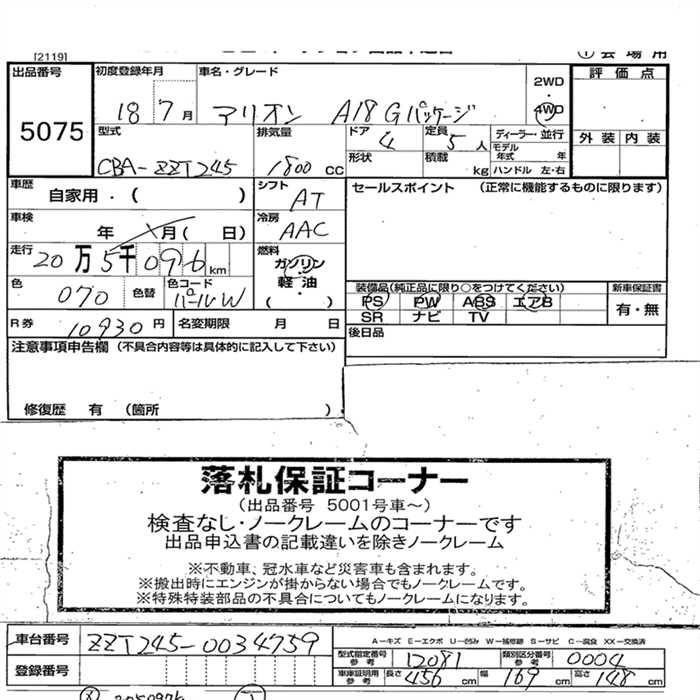 [2119]
① 会場用
出品番号 5075
初度登録年月 18 7月
車名・グレード アリオン A18 Gパッケージ
2WD
・
4WD
評価点
型式 CBA-ZZT245
排気量 1800 cc
ドア 4
定員 5 人
ディーラー・並行
外装 内装
形状
積載 kg
モデル年式 年
ハンドル 左・右
車歴 自家用・( )
シフト AT
セールスポイント (正常に機能するものに限ります)
車検 年 月( 日)
冷房 AAC
走行 20万5千096km
燃料 ガソリン
軽油
( )
色 070 色替
色コード パールW
装備品(純正品に限り○をつけてください)
新車保証書
PS PW ABS エアB
SR ナビ TV
有・無
R券 10930円
名変期限 月 日
後日品
注意事項申告欄 (不具合内容等は具体的に記入して下さい)
修復歴 有 (箇所 )
落札保証コーナー
(出品番号 5001号車〜)
検査なし・ノークレームのコーナーです
出品申込書の記載違いを除きノークレーム
※不動車、冠水車など災害車も含まれます。
※搬出時にエンジンが掛からない場合でもノークレームです。
※特殊特装部品の不具合についてもノークレームになります。
車台番号 ZZT245-0034759
A-キズ E-エクボ U-凹み W-補修跡 S-サビ C-腐食 XX-交換済
型式指定番号 参考 12081
類別区分番号 参考 0004
登録番号
車庫証明用 参考 長さ 456 cm 幅 169 cm 高さ 148 cm